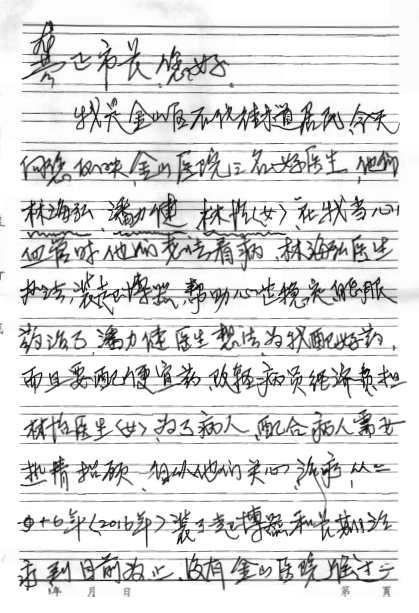 龚正市长,您好.
我是金山区石化街道居民,今天
向您反映,金山医院三名好医生,他们
林海弘,潘力健 林怡(女),在我当心
血管时他们看病,林海弘医生
装起博器,帮助心也稳定能服
药治了,潘力健医生想法为我配好药,
而且要配便宜药,改轻病员经济负担
林怡医生(女),为了病人,配合病人需要
热情招顾,但以他们关心,治疗,从二
0十6年(2016年)装了起博器和长期治
疗到目前为止,没有金山医院
年 月 日 第 页